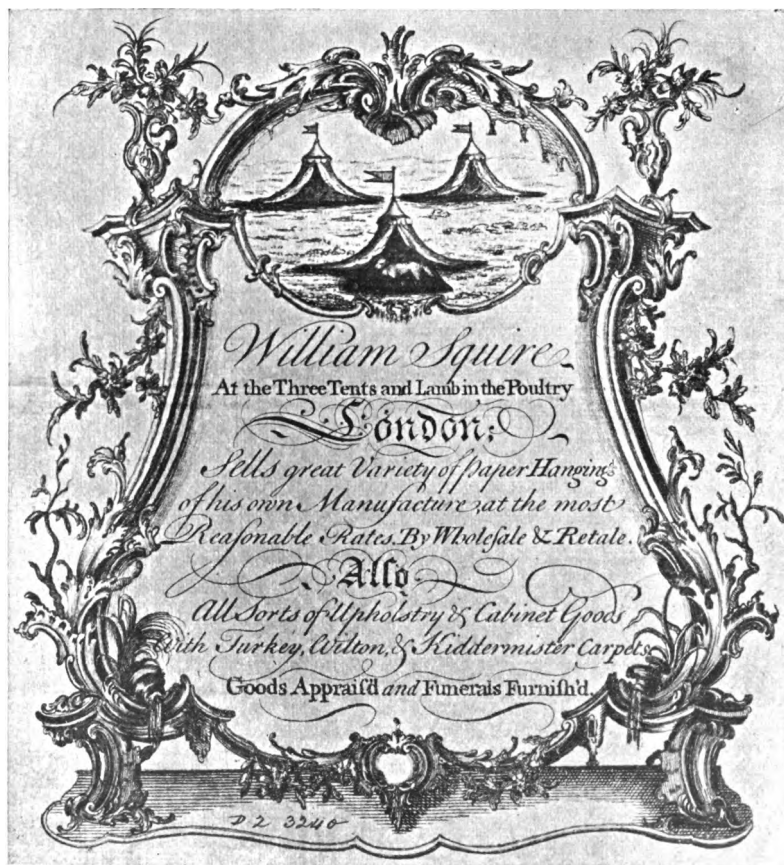 William Squire
At the Three Tents and Lamb in the Poultry
London;
Sells great Variety of Paper Hangings
of his own Manufacture, at the most
Reaſonable Rates. By Wholeſale & Retale.
Alſo
All Sorts of Upholstry & Cabinet Goods
With Turkey, Wilton, & Kiddermister Carpets
Goods Appraiſ'd and Funerals Furniſh'd.
D 2 3240